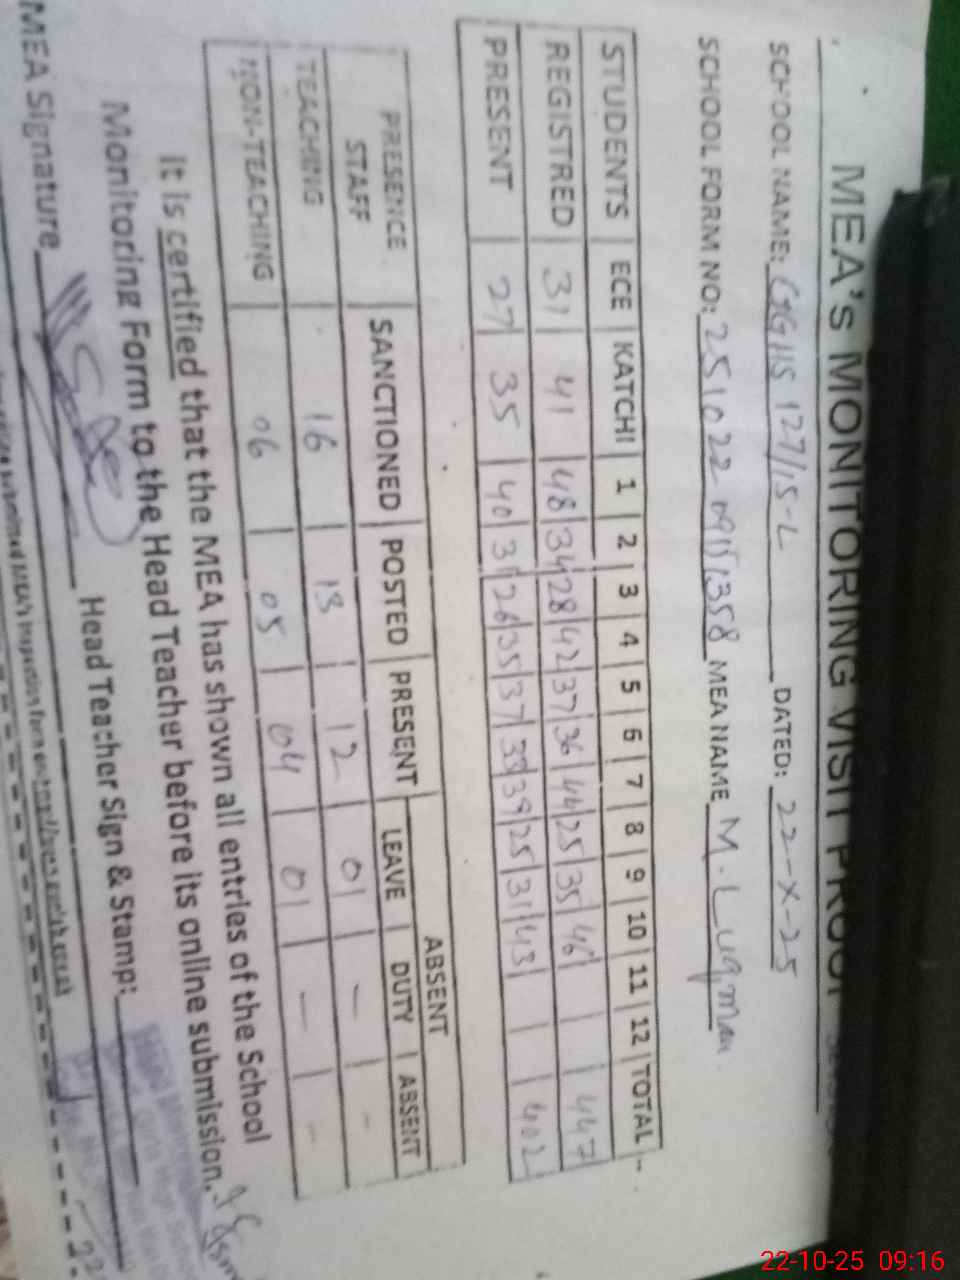 MEA's MONITORING VISIT PROOF
SCHOOL NAME: GGHS 127/15-L DATED: 22-X-25
SCHOOL FORM NO: MEA NAME M. Luqman
STUDENTS ECE KATCHI 1 2 3 4 5 6 7 8 9 10 11 12 TOTAL
REGISTRED 31 41 48 34 28 42 37 36 44 25 35 46 447
PRESENT 27 35 40 31 26 35 37 33 39 25 31 43 402
PRESENCE STAFF SANCTIONED POSTED PRESENT ABSENT
LEAVE DUTY ABSENT
TEACHING 16 13 12 01 — -
NON-TEACHING 06 05 04 01 — -
It is certified that the MEA has shown all entries of the School
Monitoring Form to the Head Teacher before its online submission.
MEA Signature Head Teacher Sign & Stamp:
22-10-25 09:16